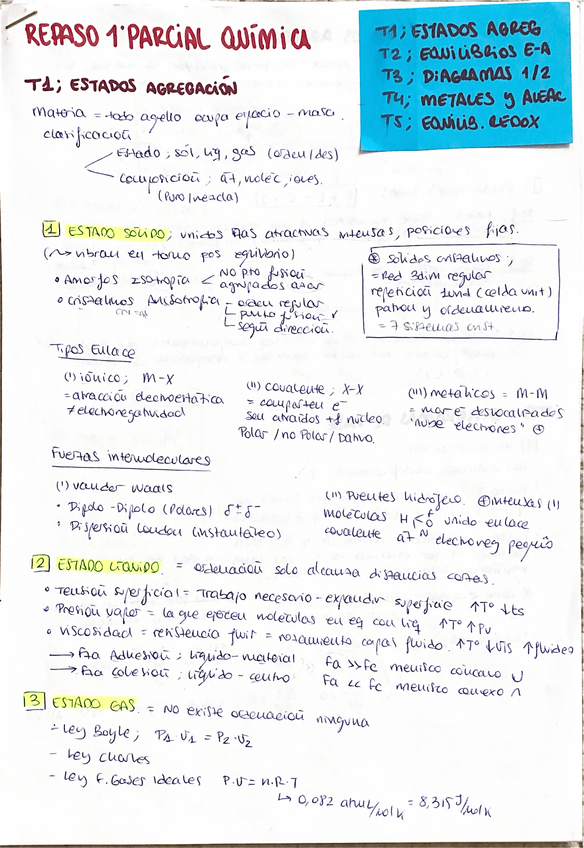 REPASO 1º PARCIAL QUÍMICA
T1; ESTADOS AGREG
T2; EQUILIBRIOS E-A
T3; DIAGRAMAS 1/2
T4; METALES Y ALEAC
T5; EQUILIB. REDOX
T1; ESTADOS AGREGACIÓN
Materia = todo aquello ocupa espacio - masa.
clasificación
Estado; sól, liq, gas (orden/des)
composición; át, moléc, iones.
(Puro/mezcla)
1 ESTADO SÓLIDO; unidos fzas atractivas intensas, posiciones fijas.
(→ vibran en torno pos equilibrio)
• Amorfos Isotropía
NO pto fusión
agrupados azar
• cristalinos Anisotropía
- orden regular
punto fusión
según dirección.
sólidos cristalinos;
= Red 3dim regular
repetición unid (celda unit)
patrón y ordenamiento.
= 7 sistemas crist.
Tipos Enlace
(I) iónico; M-X
= atracción electrostática
≠ electronegatividad
(II) covalente; X-X
= comparten e⁻
son atraídos + núcleo
Polar / no Polar / Dativo.
(III) metálicos = M-M
= mar e⁻ deslocalizados
"nube electrones" ⊕
Fuerzas intermoleculares
(I) vander waals
• Dipolo - Dipolo (Polares) δ⁺ δ⁻
• Dispersión London (instantáneo)
(II) Puentes hidrógeno. ⊕ intensas (I)
moléculas H < F O N unido enlace
covalente át electroneg pequeño
2 ESTADO LÍQUIDO. = ordenación solo alcanza distancias cortas.
• Tensión superficial = Trabajo necesario - expandir superficie ↑Tº ↓ts
• Presión vapor = la que ejercen moléculas en eq con liq ↑Tº ↑Pv
• viscosidad = resistencia fluir = rozamiento capas fluido. ↑Tº ↓vis ↑fluidez
→ Fza Adhesión; líquido - material
Fa >> Fc menisco cóncavo ∪
→ Fza Cohesión; líquido - centro
Fa << Fc menisco convexo ∩
3 ESTADO GAS = NO existe ordenación ninguna
- Ley Boyle; P1·V1 = P2·V2
- Ley Charles
- Ley F. Gases Ideales P·V = n·R·T
↳ 0,082 atmL/molK = 8,315 J/molK